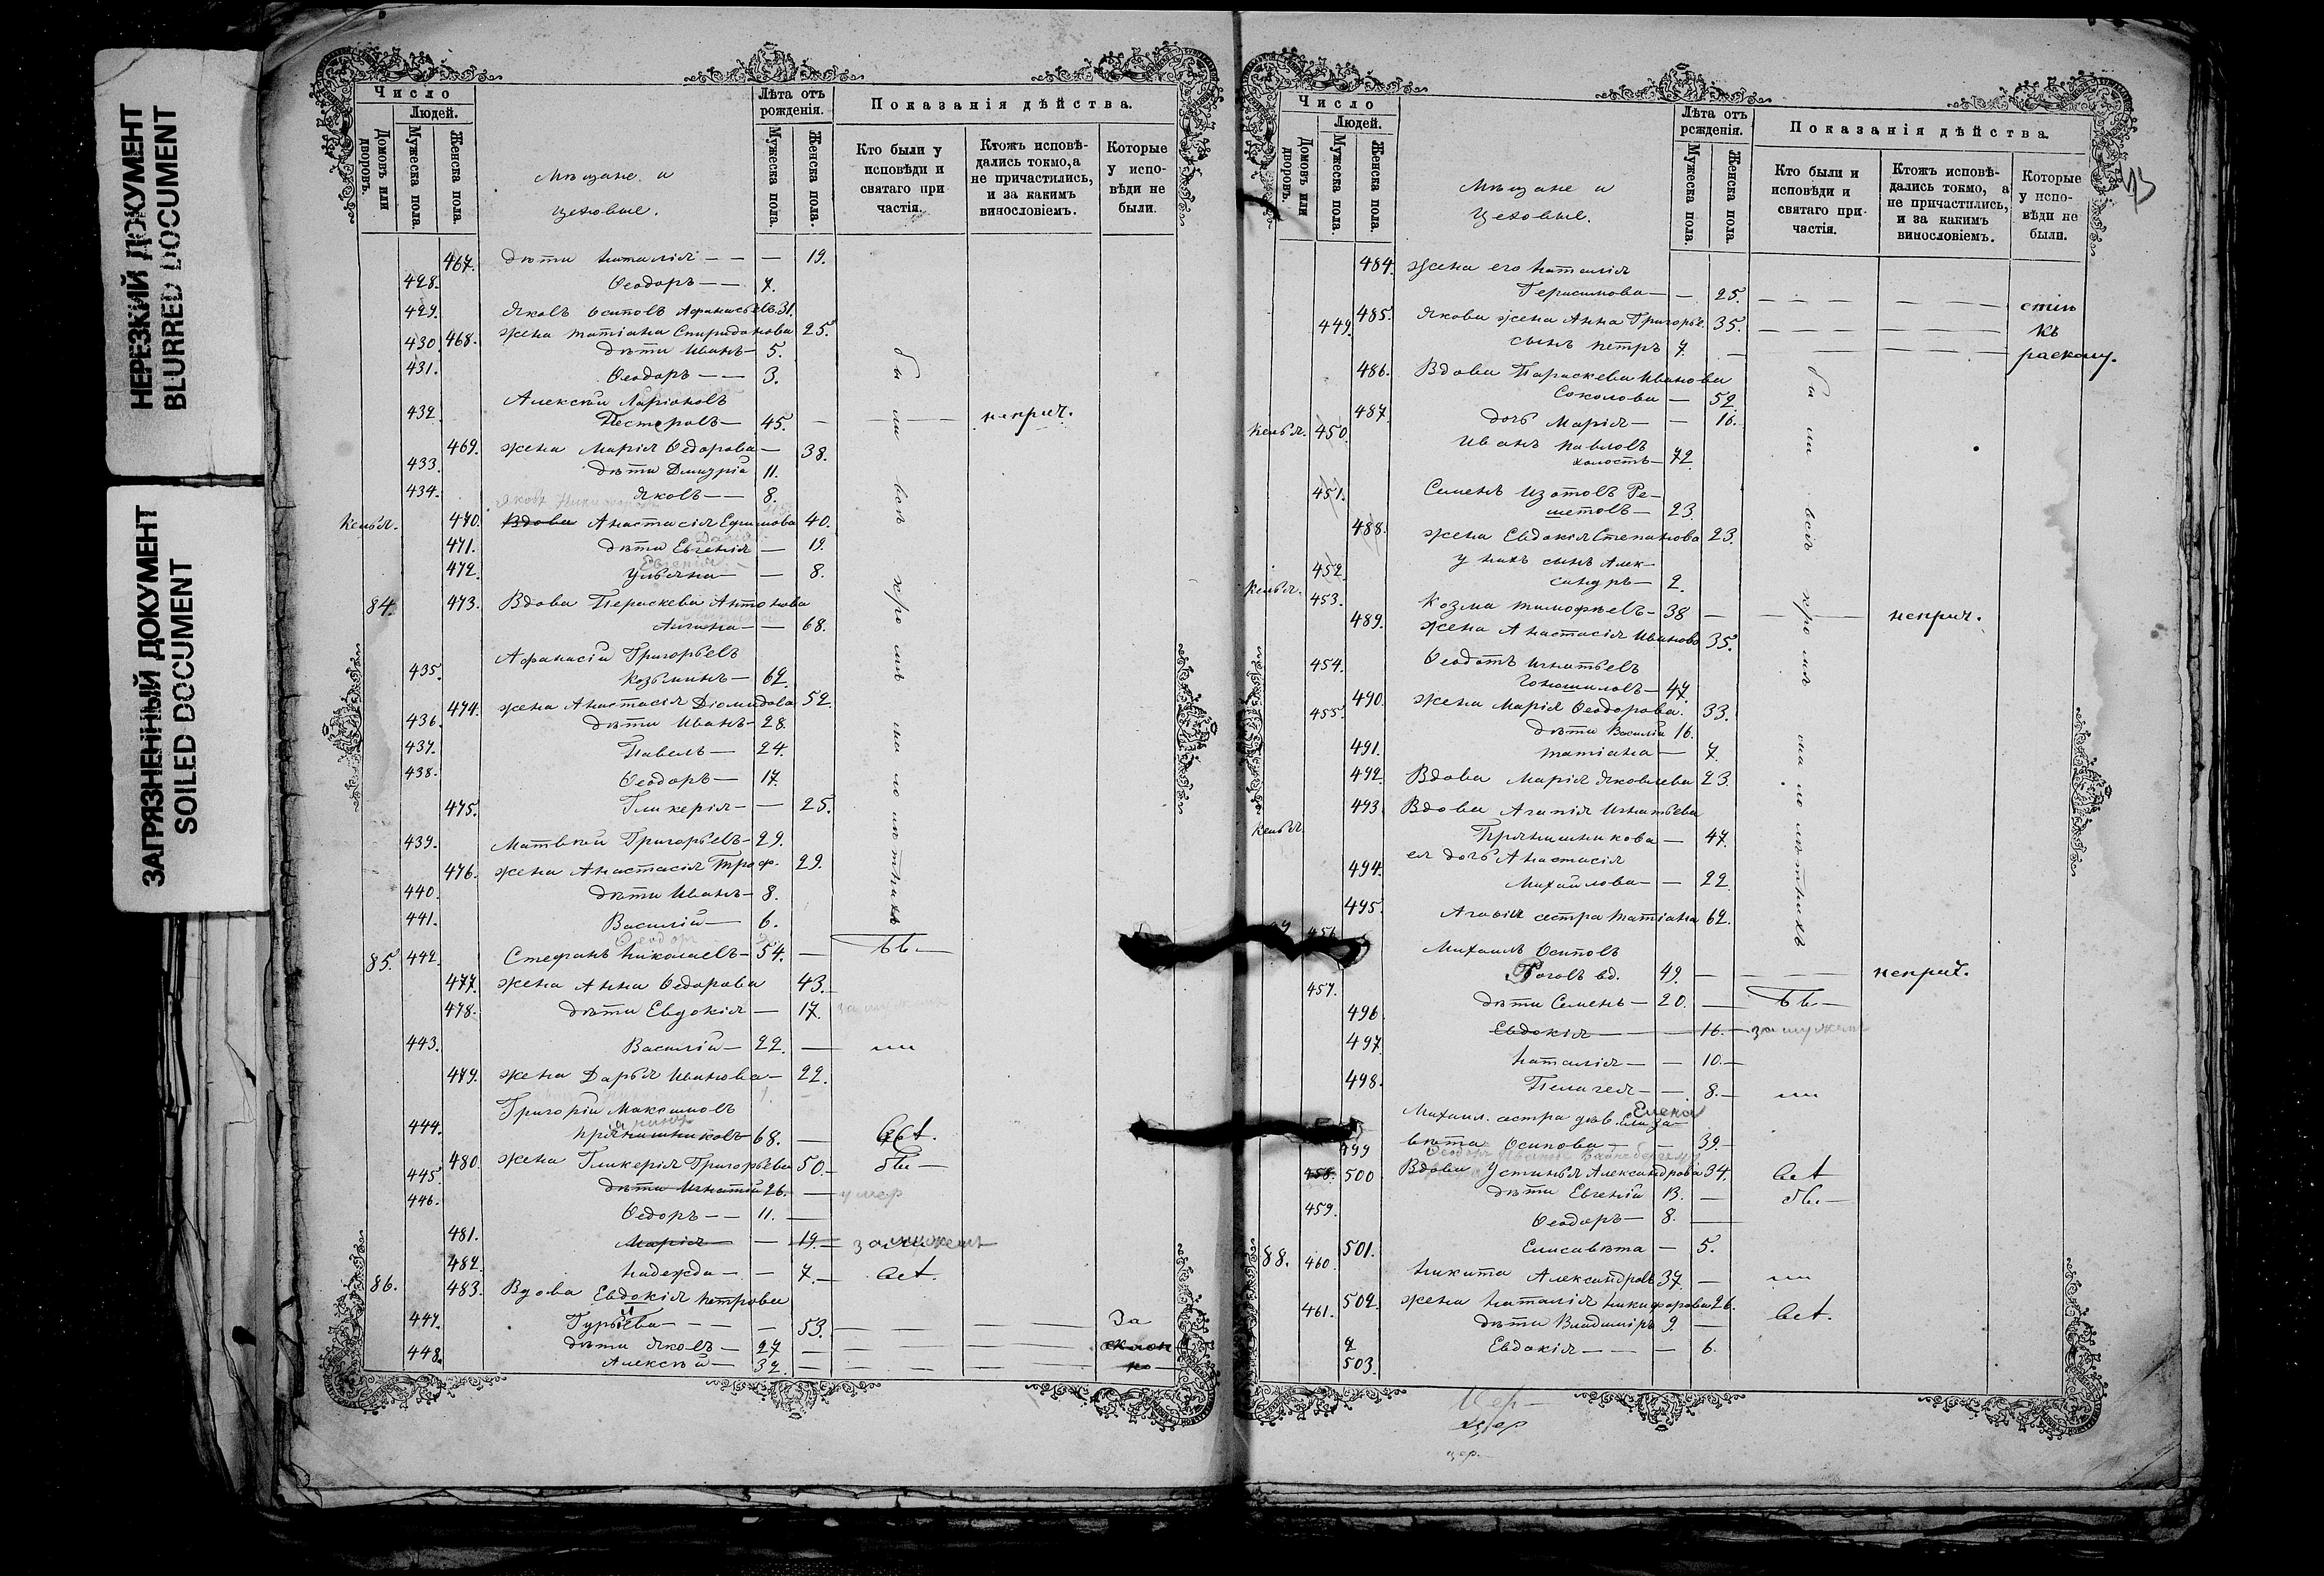 НЕРЕЗКИЙ ДОКУМЕНТ
BLURRED DOCUMENT
ЗАГРЯЗНЕННЫЙ ДОКУМЕНТ
SOILED DOCUMENT
Число
Людей.
Домовъ или дворовъ.
Мужеска пола.
Женска пола.
Мѣщане и
цеховые.
Лѣта отъ рожденія.
Мужеска пола.
Женска пола.
Показанія дѣйства.
Кто были у исповѣди и святаго причастія.
Ктожъ исповѣдались токмо, а не причастились, и за какимъ винословіемъ.
Которые у исповѣди не были.
467. дѣти Наталія — — — 19.
428. Ѳеодоръ — — 7.
429. Яковъ Осиповъ Афанасьевъ 31.
468. жена Татіана Спиридонова 25.
430. дѣти Иванъ — 5.
431. Ѳеодоръ — — 3.
Алексѣй Ларіоновъ
432. Пестеровъ — 45. — — неприч.
469. жена Марія Ѳедорова — 38.
433. дѣти Димитрій 11.
434. Яковъ — — 8.
Келья. 470. Вдова Анастасія Ефимова 40.
471. дѣти Евгенія — 19.
472. Ульяна — — 8.
84. 473. Вдова Параскева Антонова
— — 68.
Афанасій Григорьевъ
435. Козьминъ — 62.
474. жена Анастасія Діомидова 52.
436. дѣти Иванъ — 28.
437. Павелъ — 24.
438. Ѳеодоръ — 17.
475. Гликерія — — 25.
439. Матвѣй Григорьевъ — 29.
476. жена Анастасія Троф. 29.
440. дѣти Иванъ — 8.
441. Василій — 6.
были всѣ кромѣ малолѣтнихъ
85. 442. Стефанъ Николаевъ — 54. —
477. жена Анна Ѳедорова 43. —
478. дѣти Евдокія — 17.
443. Василій — 22. — ли
479. жена Дарья Иванова — 22.
Григорій Максимовъ
444. Пряишниковъ 68. — всѣ.
480. жена Гликерія Григорьева 50. — бы —
445. дѣти Игнатій 26. — умер
446. Ѳедоръ — — 11. —
481. Марія — — 19. — замужем
482. Надежда — — 7. — всѣ.
86. 483. Вдова Евдокія Петрова
Гурьева — — — 53. — — За
447. дѣти Яковъ — 27 — — — склон
448. Алексѣй — 32. — — — но
Число
Людей.
Домовъ или дворовъ.
Мужеска пола.
Женска пола.
Мѣщане и
цеховые.
Лѣта отъ рожденія.
Мужеска пола.
Женска пола.
Показанія дѣйства.
Кто были и исповѣди и святаго причастія.
Ктожъ исповѣдались токмо, а не причастились, и за какимъ винословіемъ.
Которые у исповѣди не были.
484. жена его Наталія
Герасимова — — 25. — — стію
485. Якова жена Анна Григорье. 35. — — къ
449. сынъ Петръ 7. — — — расколу.
486. Вдова Параскева Иванова
Соколова — 52.
487. дочь Марія — — 16.
Келья. 450. Иванъ Павловъ
холостъ — 72.
451. Семенъ Изотовъ Ре-
шетовъ — 23.
488. жена Евдокія Степанова 23.
452. у нихъ сынъ Алек-
сандръ — 2.
Келья. 453. Козма Тимофѣевъ — 38 — — неприч.
489. жена Анастасія Иванова 35.
454. Ѳеодотъ Игнатьевъ
— 47.
490. жена Марія Ѳеодорова. 33.
455. дѣти Василій 16.
491. Татіана — 7.
492. Вдова Марія Яковлева 23.
493. Вдова Агапія Игнатьева
Келья. Прянишникова — 47.
494. ея дочь Анастасія
Михайлова — — 22.
495. Агапіи сестра Татіана 62.
были всѣ кромѣ малолѣтнихъ
456. Михаилъ Осиповъ
Роговъ вд. 49. — — неприч.
457. дѣти Семенъ — 20. — бы —
496. Евдокія — — 16. — замужем
497. Наталія — — 10. —
498. Пелагея — — 8. — ли
Михаил. сестра дѣв. Елиза- Елена
499 вета Осипова — — 39 —
458. 500 Вдова Устинья Александрова 34. всѣ
дѣти Евгеній 13. — бы. —
459. Ѳеодоръ — 8. —
501. Елисавета — 5.
88. 460. Никита Александров 37 — ли
502. жена Наталія Никифорова 26. всѣ.
461. дѣти Владиміръ 9. —
503. Евдокія — — — 6.